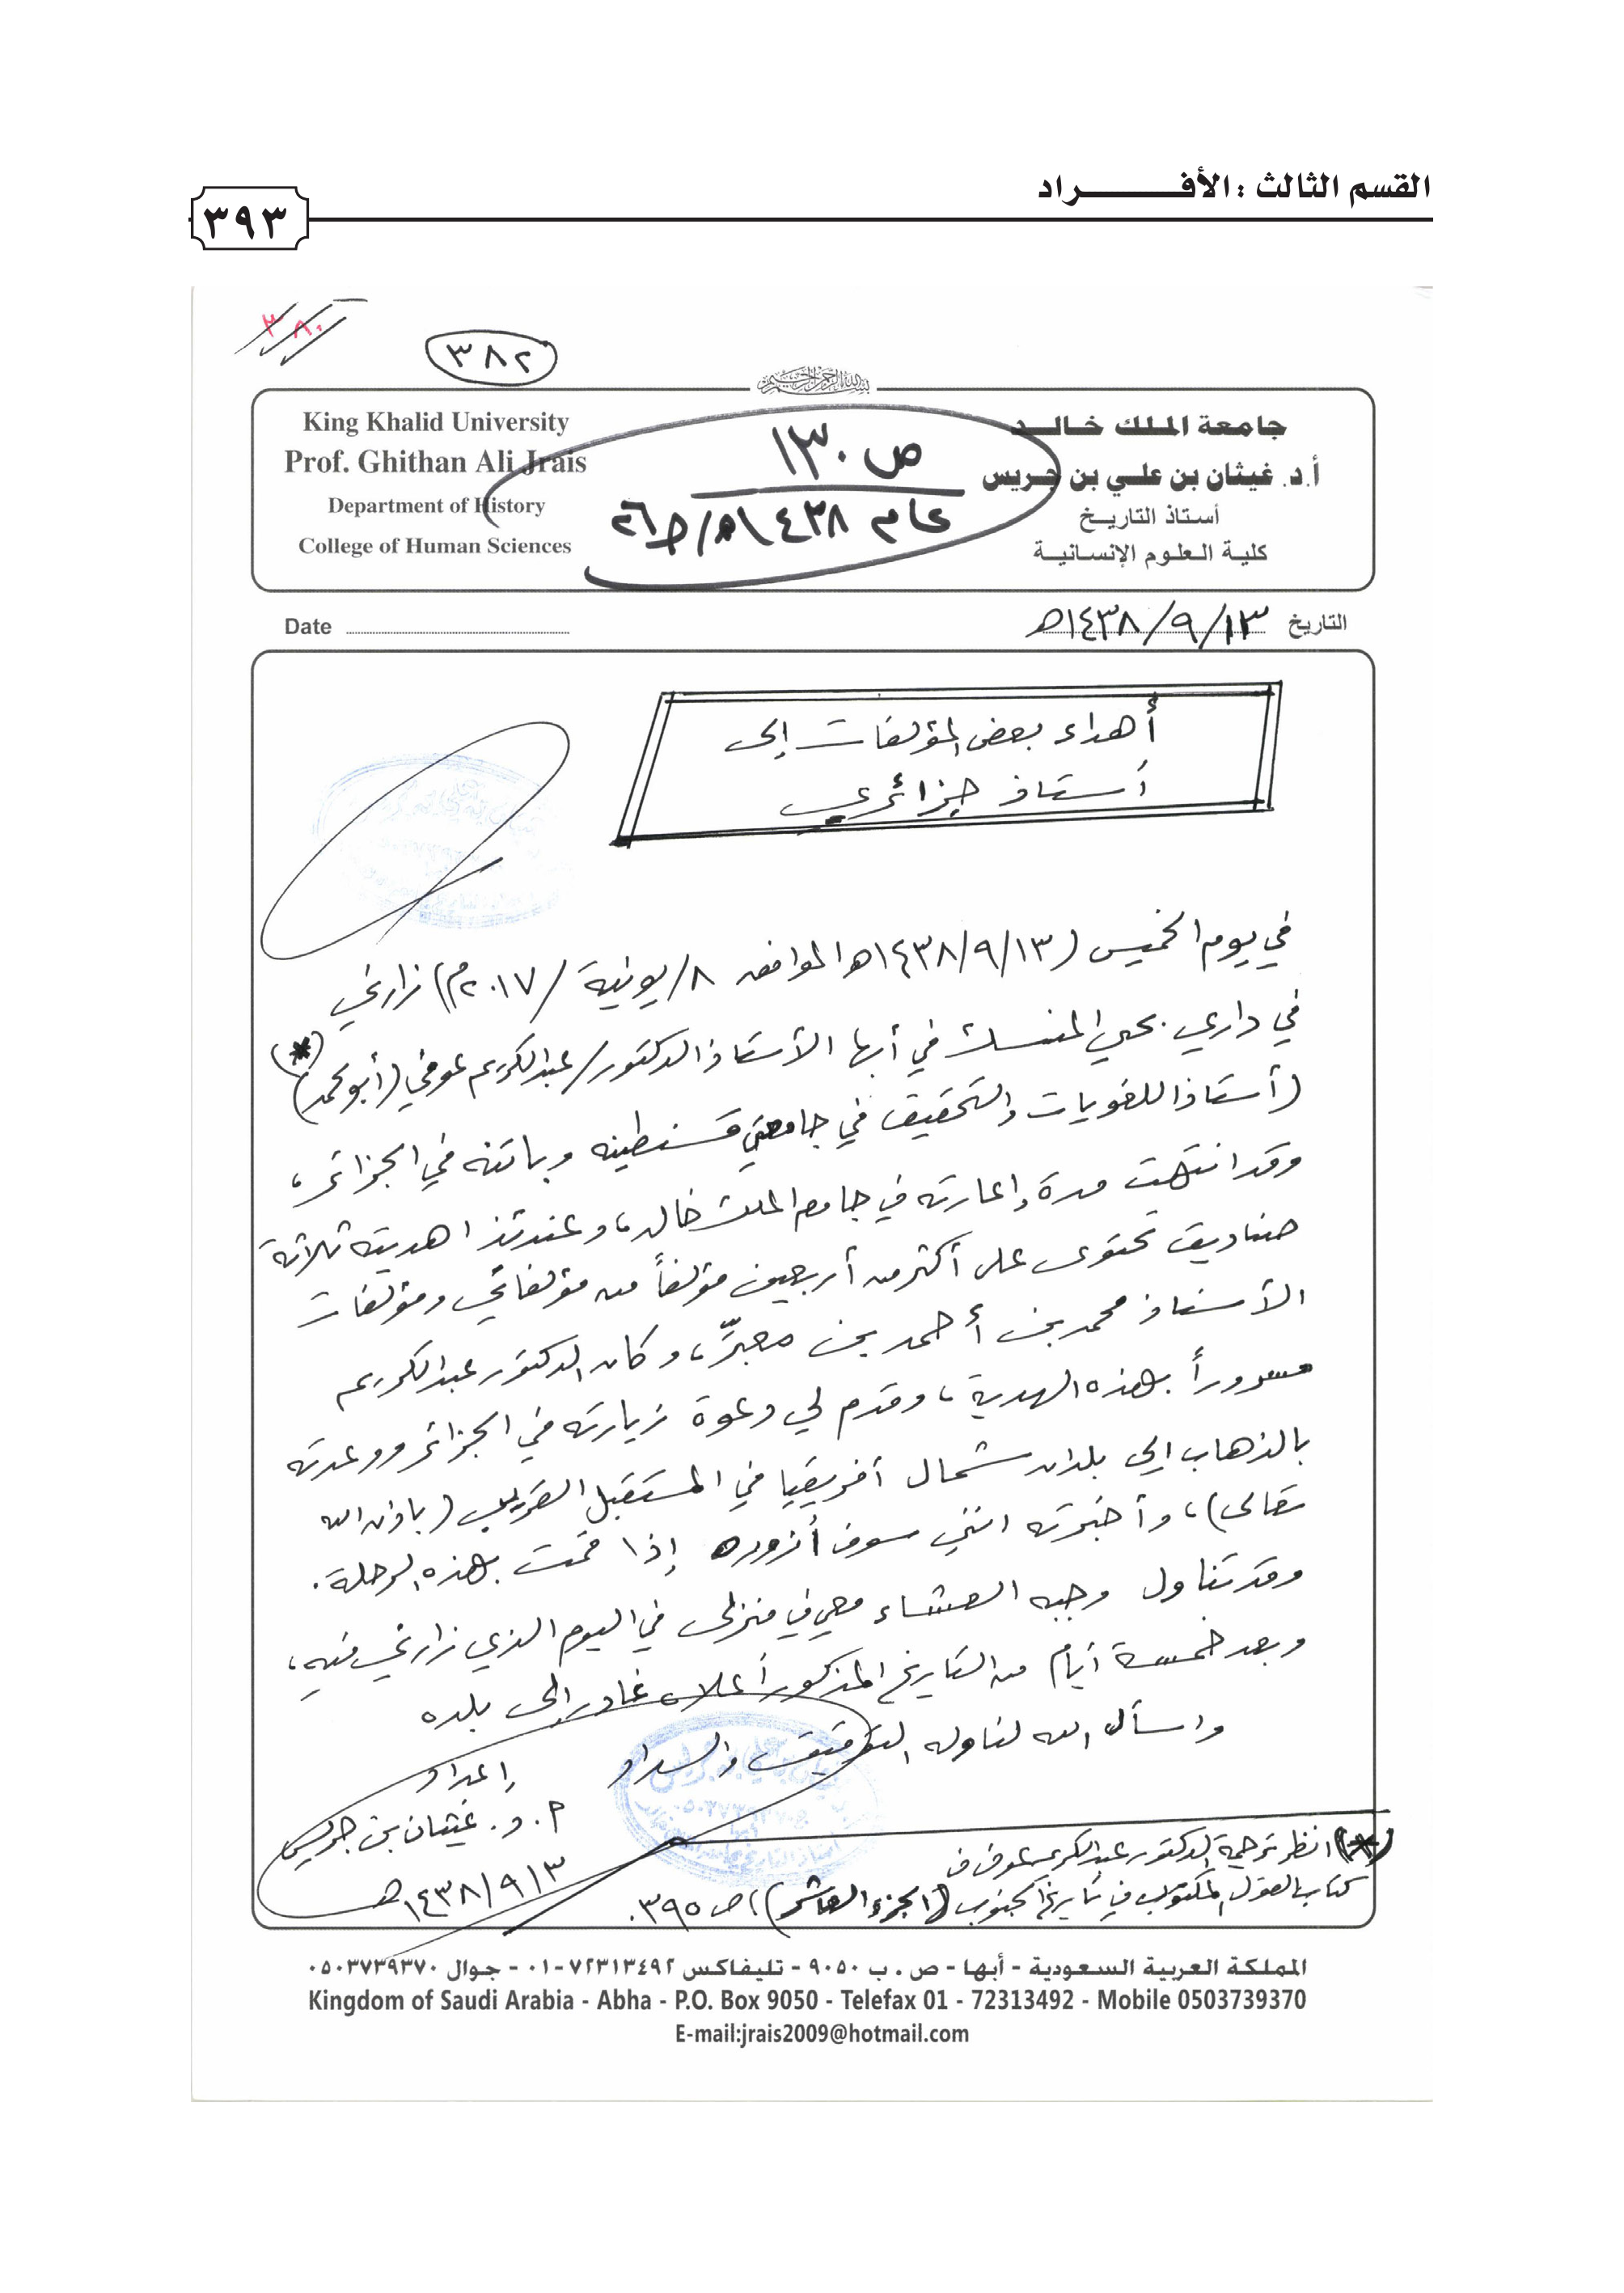 القسم الثالث : الأفـــــــــراد
٣٩٣
٣٨٠
٣٨٢
بسم الله الرحمن الرحيم
جامعة الملك خالد
أ.د. غيثان بن علي بن جريس
أستاذ التاريخ
كلية العلوم الإنسانية
King Khalid University
Prof. Ghithan Ali Jrais
Department of History
College of Human Sciences
ص ١٣٠
عام ١٤٣٨هـ/ج٢٦
التاريخ ١٤٣٨/٩/١٣هـ
Date
أهداء بعض المؤلفات إلى
أستاذ جزائري
في يوم الخميس (١٤٣٨/٩/١٣هـ الموافق ٨/يونية/٢٠١٧م) زارني
في داري بحي المنسك في أبها الأستاذ الدكتور/عبدالكريم عوفي (أبو محمد) (*)
(أستاذ اللغويات والتحقيق في جامعتي قسنطينه وباتنه في الجزائر،
وقد انتهت مدة إعارته في جامعة الملك خالد، وعندئذ اهديته ثلاثة
صناديق تحتوى على أكثر من أربعين مؤلفاً من مؤلفاتي ومؤلفات
الأستاذ محمد بن أحمد بن معبّر، وكان الدكتور عبدالكريم
مسروراً بهذه الهدية، وقدم لي دعوة زيارته في الجزائر ووعدته
بالذهاب إلى بلدان شمال أفريقيا في المستقبل القريب (باذن الله
تعالى)، وأخبرته انني سوف أزوره إذا قمت بهذه الرحلة.
وقد تناول وجبه العشاء معي في منزلى في اليوم الذي زارني فيه،
وبعد خمسة أيام من التاريخ المذكور أعلاه غادر إلى بلده
واسأل الله لنا وله التوفيق والسداد
إعداد
أ.د. غيثان بن جريس
١٤٣٨/٩/١٣هـ
(*) انظر ترجمة الدكتور عبدالكريم عوفي في
كتاب القول المكتوب في تاريخ الجنوب (الجزء العاشر)، ص٣٩٥.
المملكة العربية السعودية - أبها - ص . ب ٩٠٥٠ - تليفاكس ٧٢٣١٣٤٩٢-٠١ - جوال ٠٥٠٣٧٣٩٣٧٠
Kingdom of Saudi Arabia - Abha - P.O. Box 9050 - Telefax 01 - 72313492 - Mobile 0503739370
E-mail:jrais2009@hotmail.com